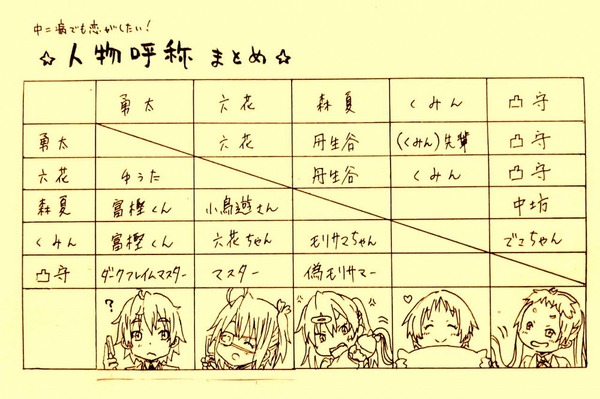 中二病でも恋がしたい!
☆人物呼称 まとめ☆
勇太 六花 森夏 くみん 凸守
勇太 六花 丹生谷 (くみん)先輩 凸守
六花 ゆうた 丹生谷 くみん 凸守
森夏 富樫くん 小鳥遊さん 中坊
くみん 富樫くん 六花ちゃん モリサマちゃん でこちゃん
凸守 ダークフレイムマスター マスター 偽モリサマー
?